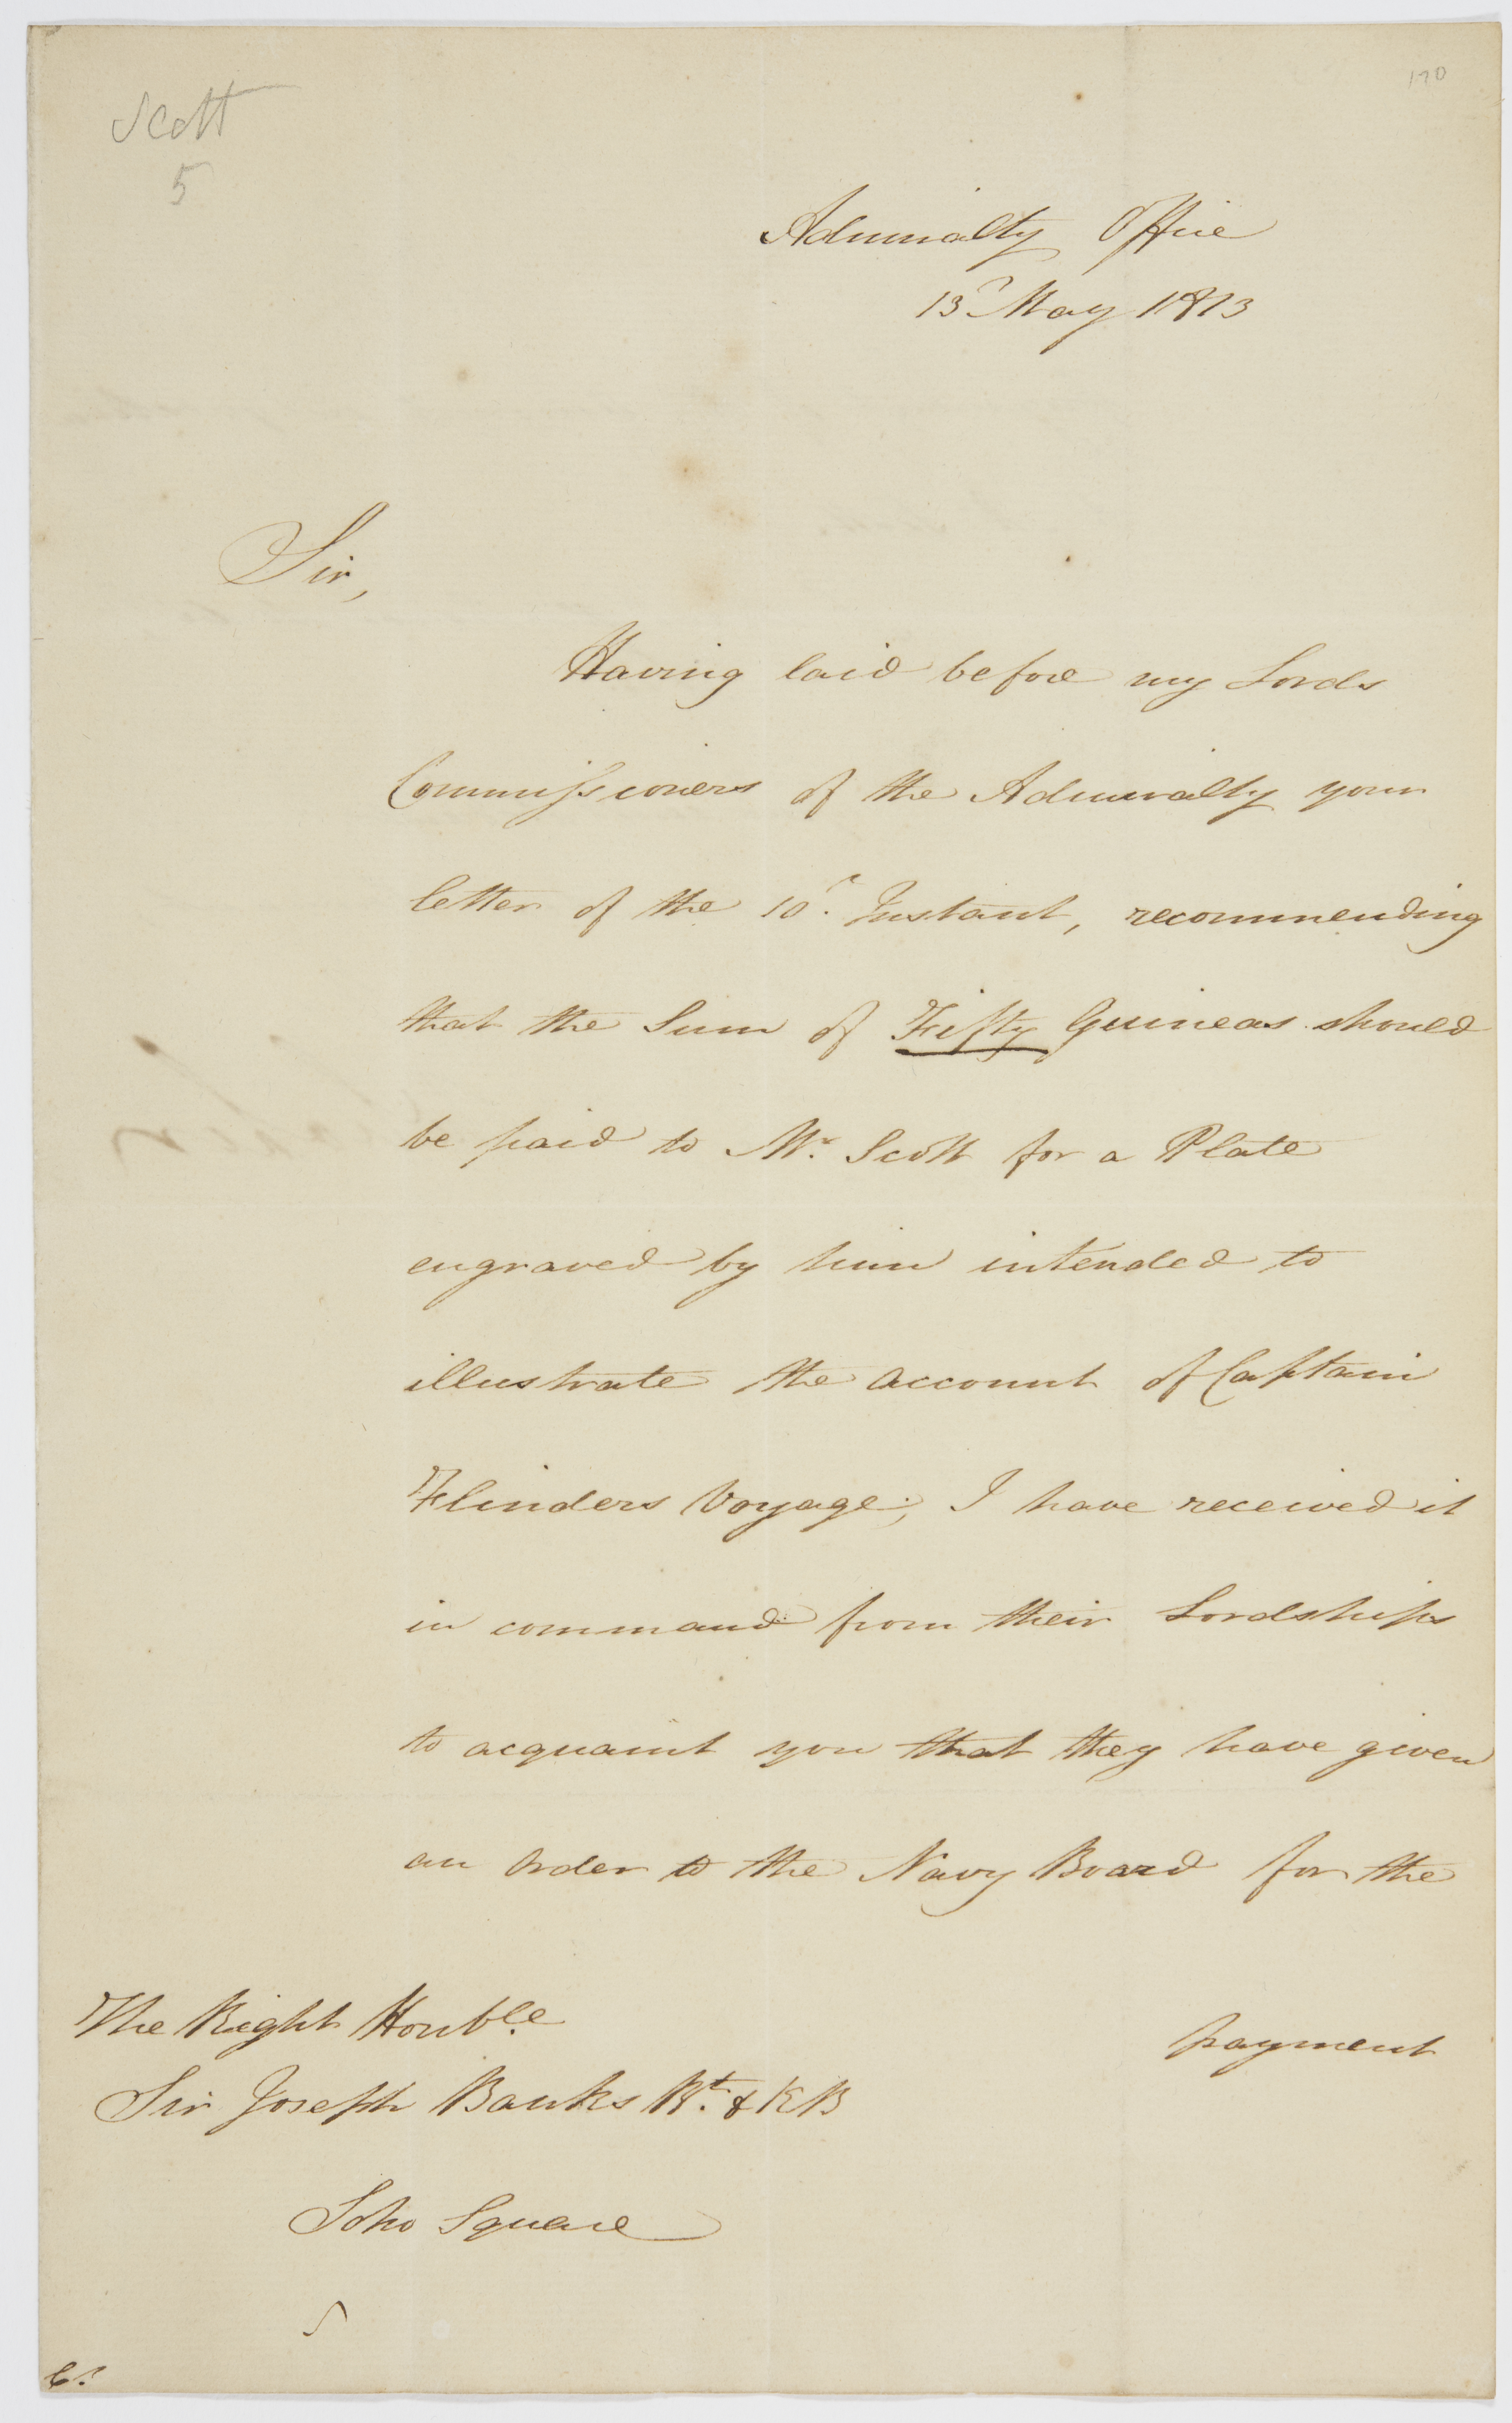 Scott
5
170
Admiralty Office
13 May 1813
Sir,
Having laid before my Lords
Commissioners of the Admiralty your
letter of the 10. Instant, recommending
that the Sum of Fifty Guineas should
be paid to Mr. Scott for a Plate
engraved by him intended to
illustrate the account of Captain
Flinders Voyage; I have received it
in command from their Lordships
to acquaint you that they have given
an order to the Navy Board for the
payment
The Right Honble.
Sir Joseph Banks Bt. & KB
Soho Square